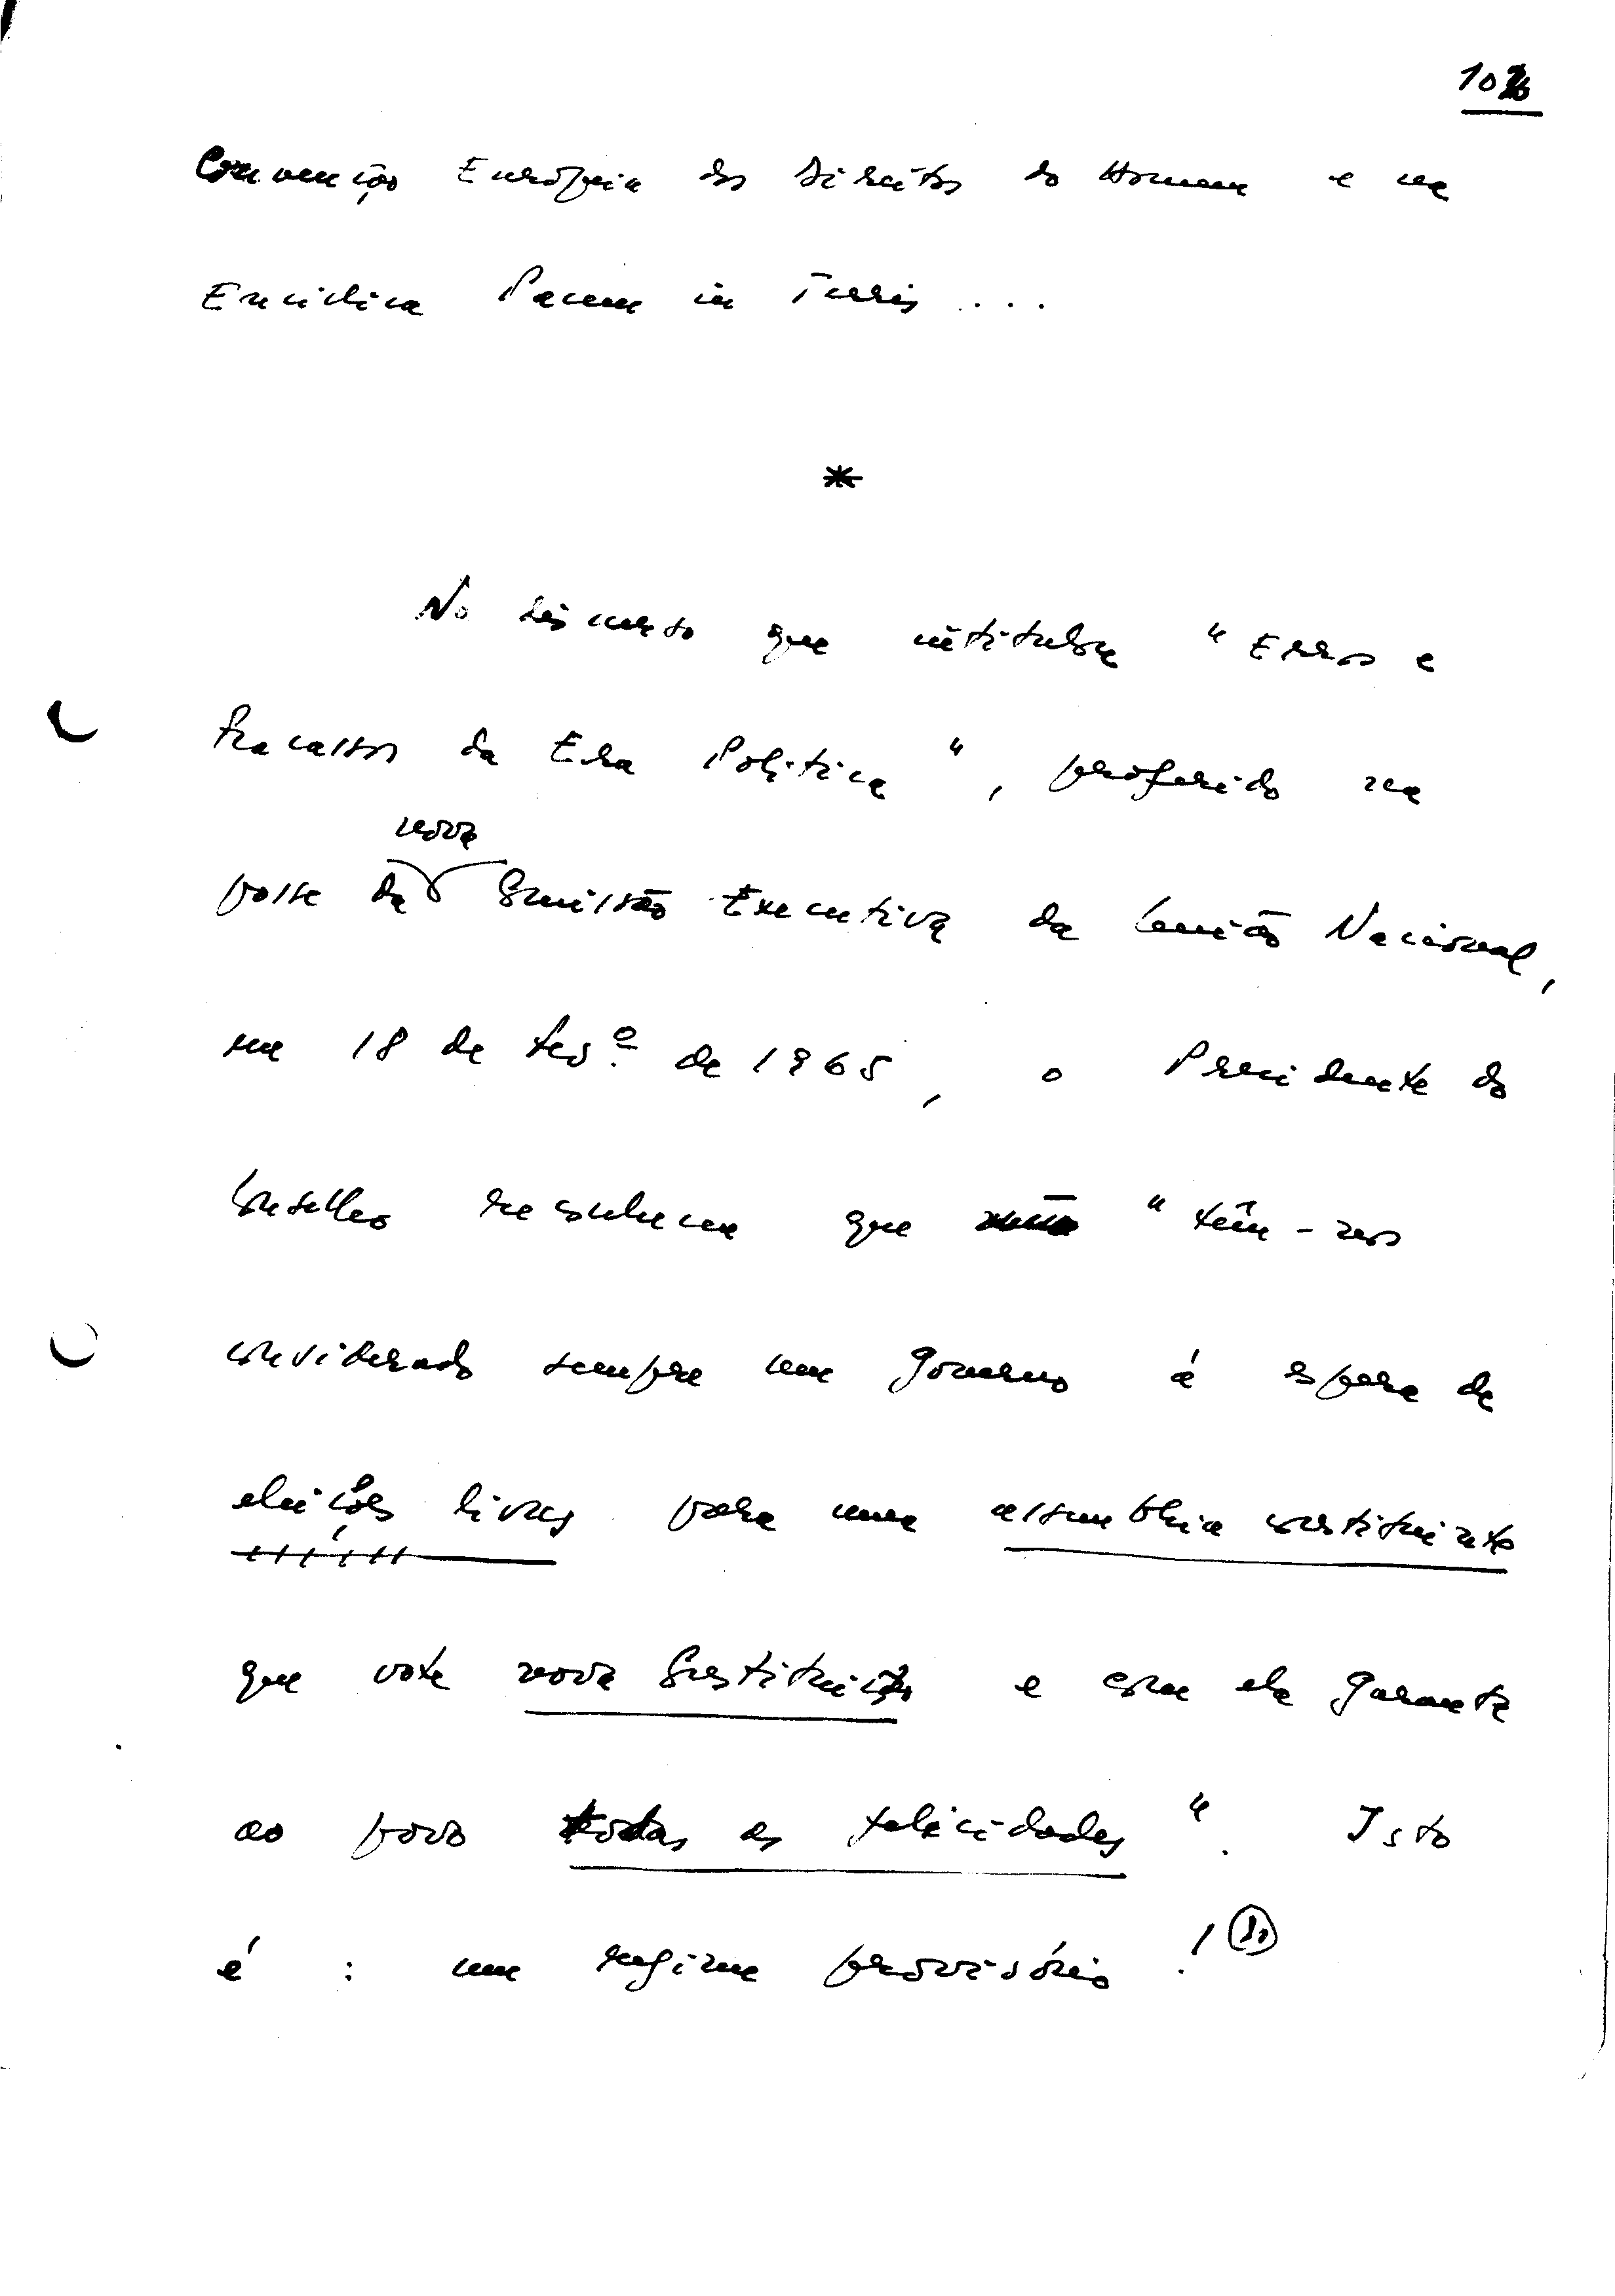 Convenção Europeia dos Direitos do Homem e na
Encíclica Pacem in Terris ...
*
No discurso que intitulou "Erros e
fracassos da Era Política", proferido na
nova
posse da Comissão Executiva da União Nacional,
em 18 de fevº de 1965, o Presidente do
Conselho reconhecera que "têm-nos
considerado sempre um governo à espera de
eleições livres para uma assembleia constituinte
que vote nova Constituição e com ela garanta
ao povo todas as felicidades". Isto
é: um regime provisório!